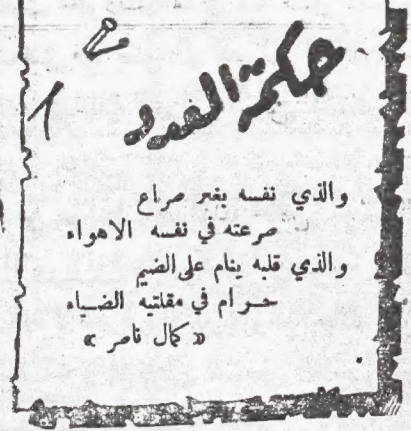 حكمة العدد
والذي نفسه بغير صراع
صرعته في نفسه الاهواء
والذي قلبه ينام على الضيم
حرام في مقلتيه الضياء
« كمال ناصر »